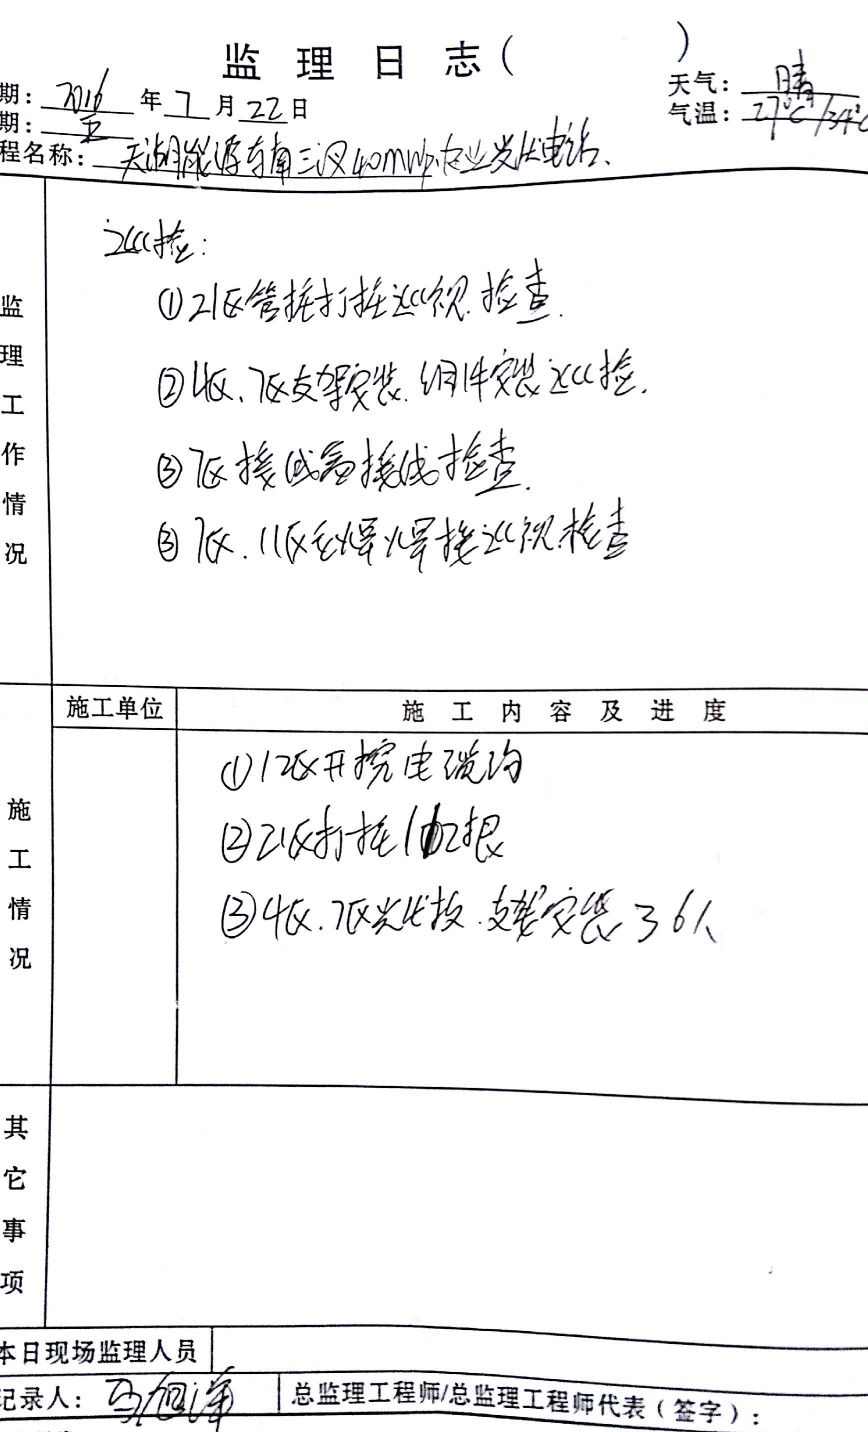 监理日志（ ）
期：2016年7月22日 天气：晴
期：五 气温：27℃/34℃
程名称：天湖能源东南三汊40MWp农业光伏电站.
监理工作情况
巡检：
①21区管桩打桩巡视.检查.
②4区、7区支架安装.组件安装巡检.
③7区接线盒接线检查.
③7区、11区 焊焊接巡视.检查
施工单位 施工内容及进度
施工情况
①12区开挖电缆沟
②21区打桩102根
③4区、7区光伏板.支架安装36人
其它事项
本日现场监理人员
记录人： 总监理工程师/总监理工程师代表（签字）：